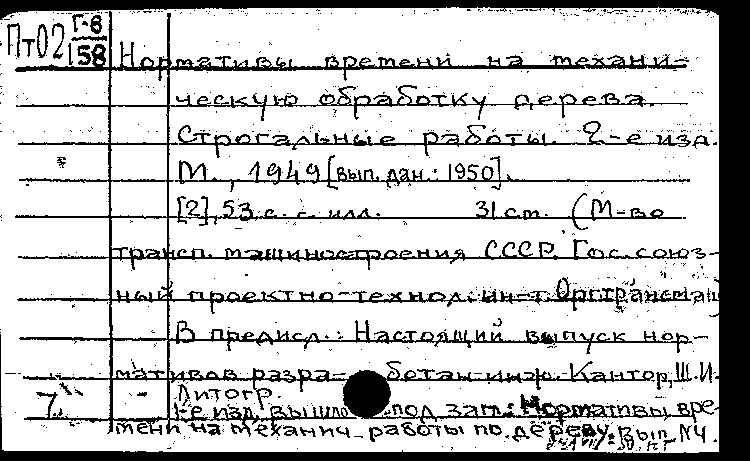 Пт02 Г-6/158
Нормативы времени на механи-
ческую обработку дерева.
Строгальные работы. 2-е изд.
М., 1949 [вып. дан.: 1950].
[2], 53 с. с илл. 31 см. (М-во
трансп. машиностроения СССР. Гос. союз-
ный проектно-технол. ин-т Оргтрансмаш
В предисл.: Настоящий выпуск нор-
мативов разработан инж. Кантор, Ш.И.
Литогр.
1-е изд. вышло под заг.: Нормативы вре-
мени на механич. работы по дереву. Вып. №4.
7.